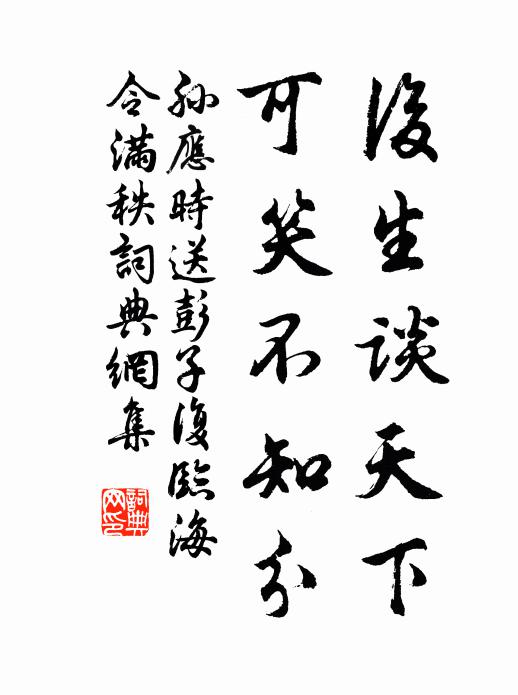 後生談天下
可笑不知分
孫應時送彭子復臨海
令滿秩詞典網集
詞典网印